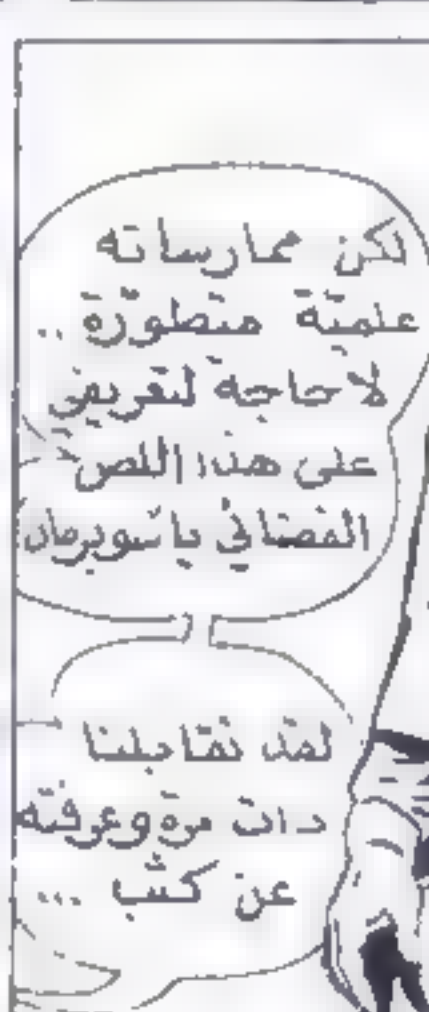 لكن ممارساته
علميّة متطوّرة ..
لا حاجة لتعريفي
على هذا اللص
الفضائي يا سوبرمان
لقد تقابلنا
ذات مرة وعرفته
عن كثب ...